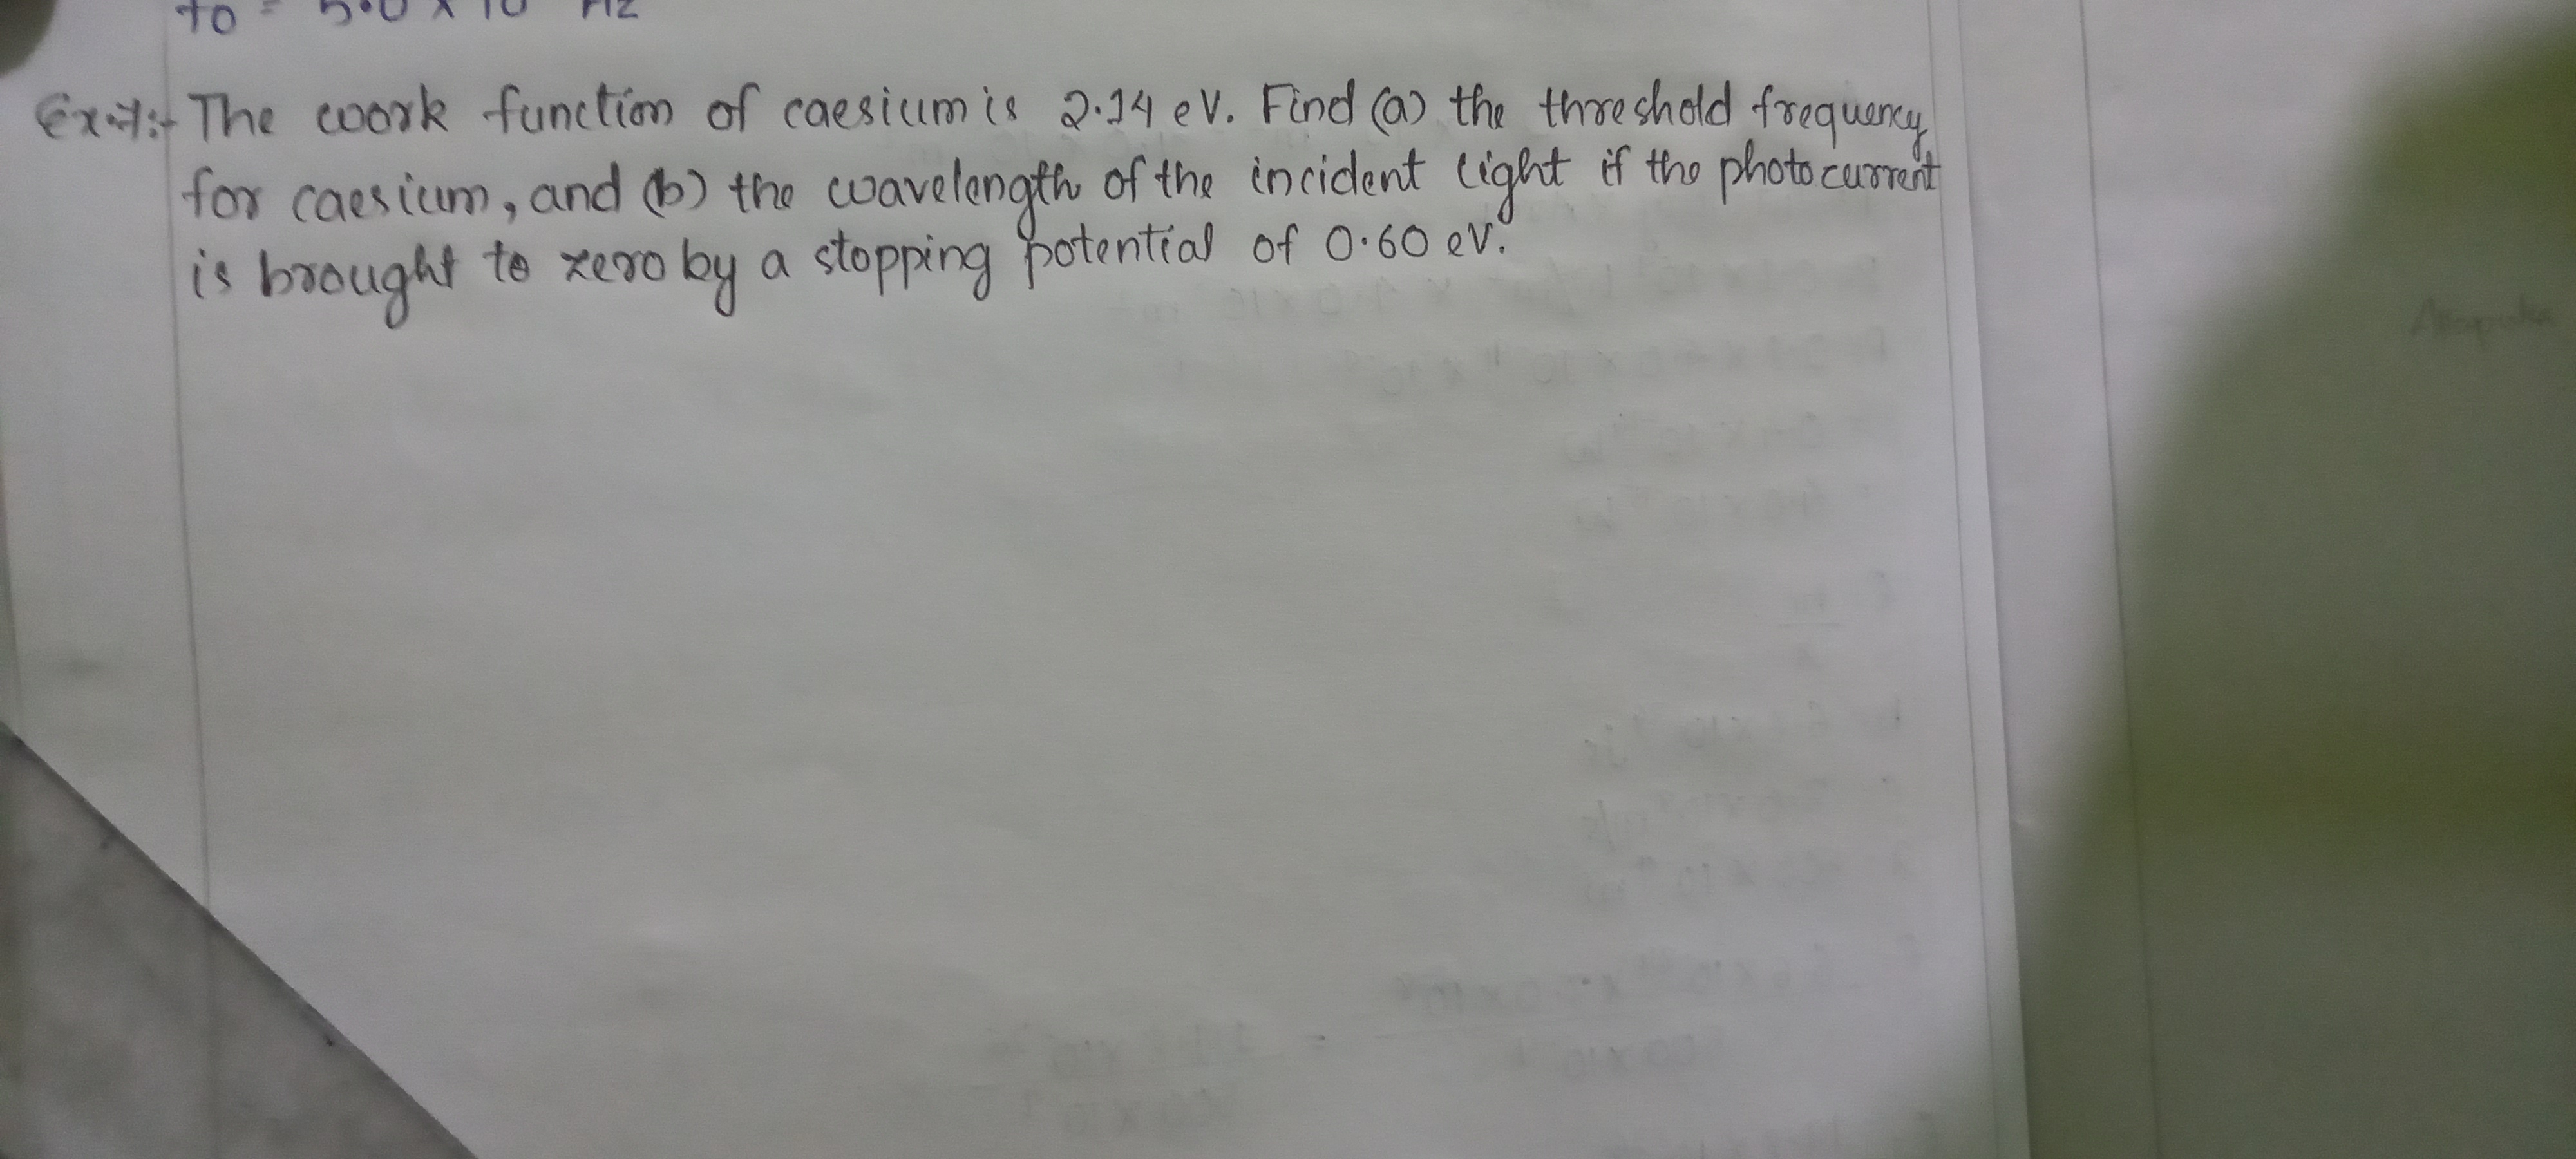 fo = 5.0 x 10 Hz
Ex-7:- The work function of caesium is 2.14 eV. Find (a) the threshold frequency
for caesium, and (b) the wavelength of the incident light if the photocurrent
is brought to zero by a stopping potential of 0.60 eV.